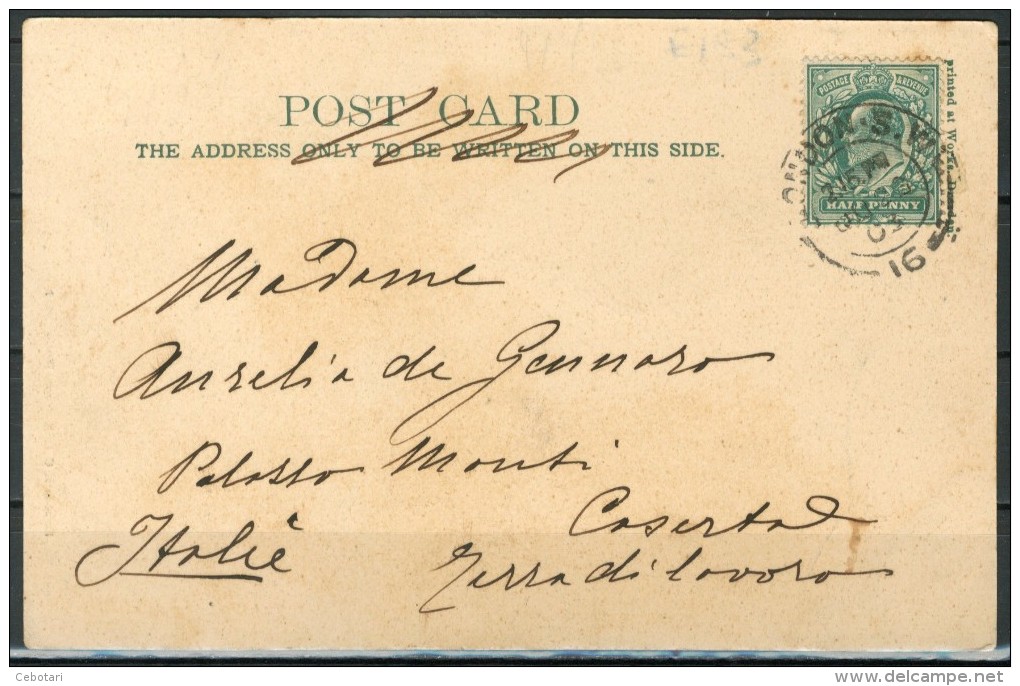 E1 23
POST CARD
THE ADDRESS ONLY TO BE WRITTEN ON THIS SIDE.
POSTAGE & REVENUE
HALF PENNY
LONDON S.W.
16
printed at Works, Dresden
Madame
Aurelia de Gennaro
Palazzo Monti
Caserta
Italie
Terra di lavoro
Cebotari
delcampe.net